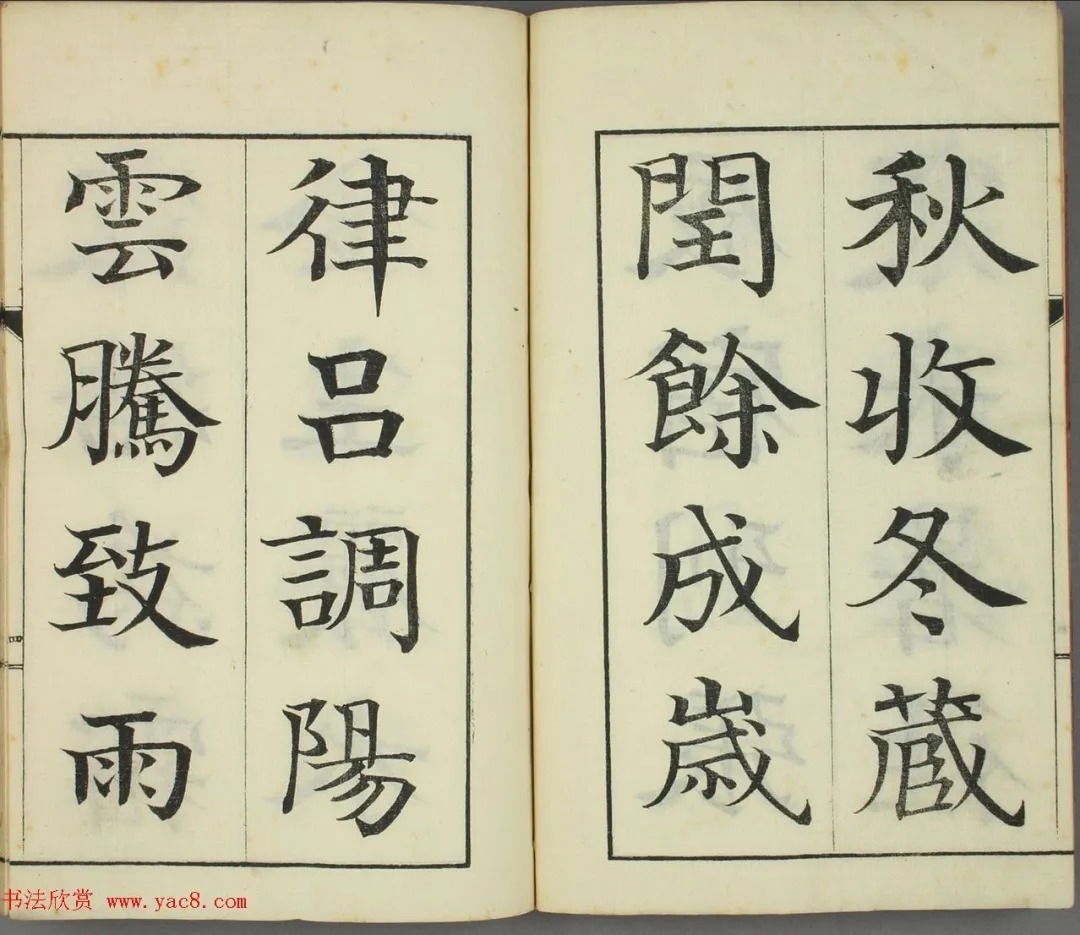 秋收冬蔵
閏餘成歳
律呂調陽
雲騰致雨
四
书法欣赏 www.yac8.com